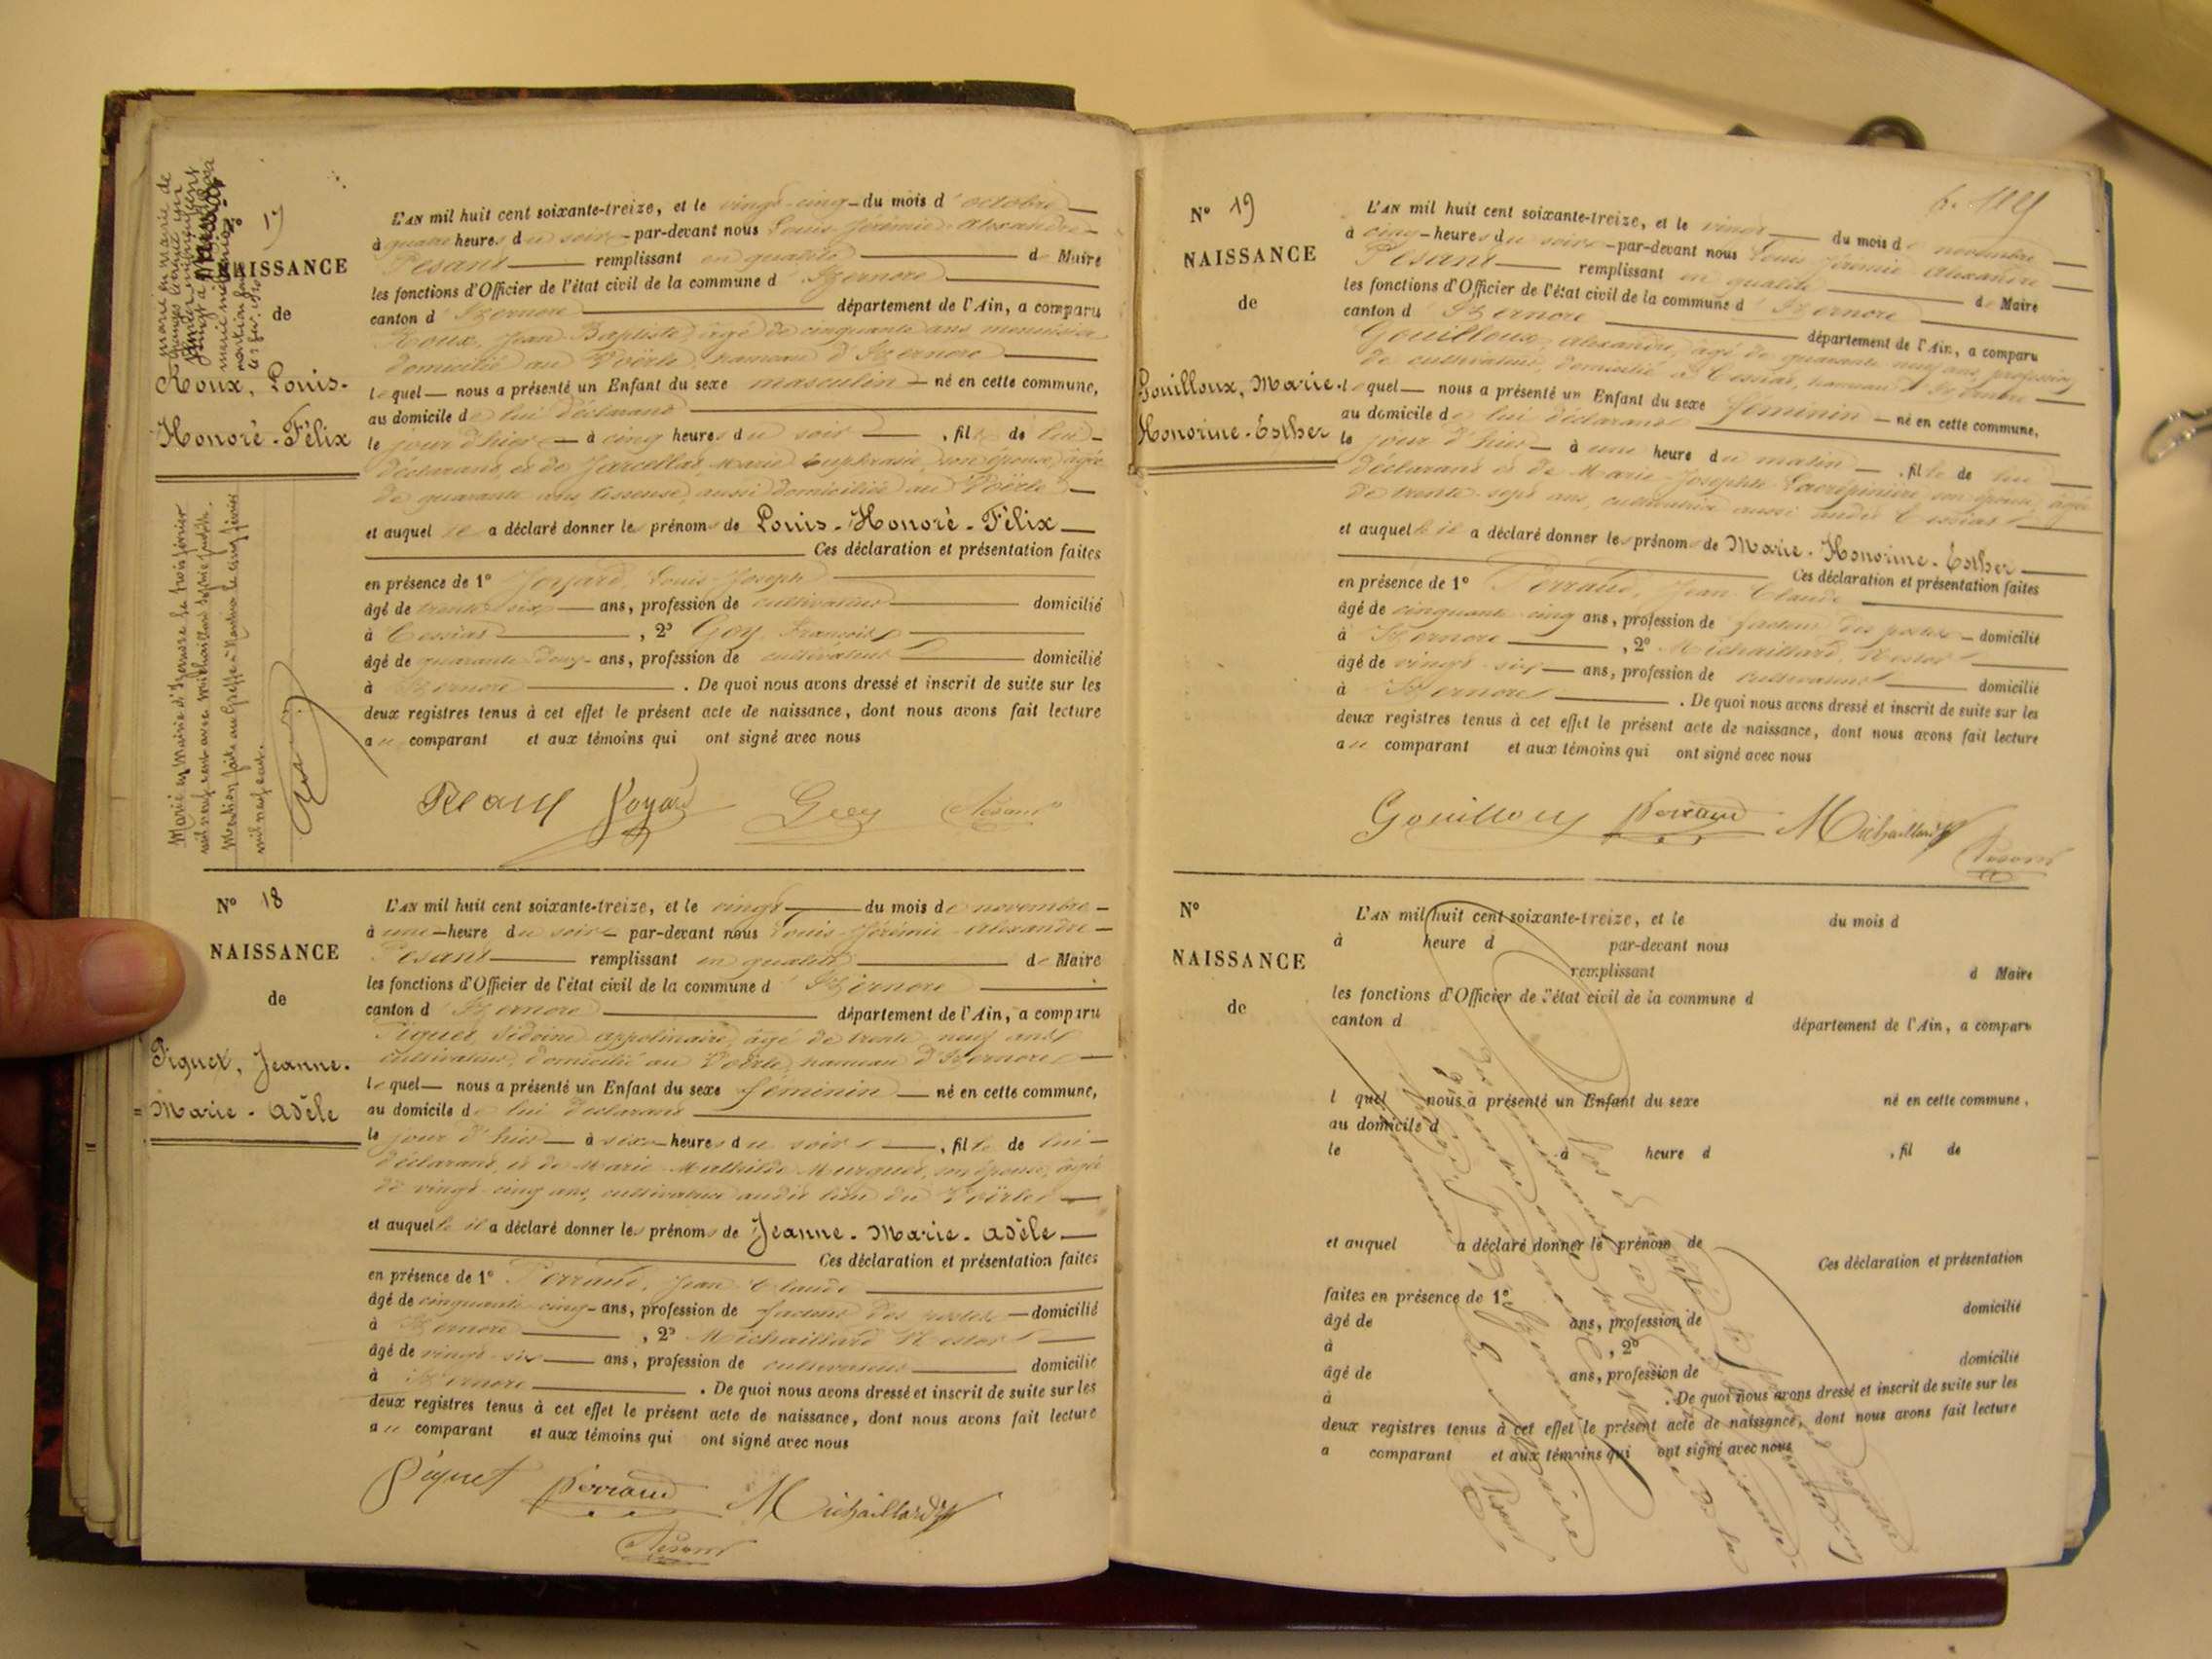 17
NAISSANCE
de
Roux, Louis-
Honoré-Félix
Marié en Mairie d'Izernore le trois février
mil neuf cent avec Michaillard Sophie Judith.
Mention faite au Greffe à Nantua le cinq février
mil neuf cent.
L'AN mil huit cent soixante-treize, et le vingt-cinq du mois d'octobre
à quatre heures du soir par-devant nous Louis Jérémie Alexandre
Pesant remplissant en qualité de Maire
les fonctions d'Officier de l'état civil de la commune d'Izernore
canton d'Izernore département de l'Ain, a comparu
Roux, Jean Baptiste, âgé de cinquante ans, menuisier
domicilié au Voërle, hameau d'Izernore
lequel nous a présenté un Enfant du sexe masculin né en cette commune,
au domicile de lui déclarant
le jour d'hier à cinq heures du soir, fils de lui
déclarant, et de Jarcellat Marie Euphrasie, son épouse, âgée
de quarante ans, tisseuse, aussi domiciliée au Voërle
et auquel il a déclaré donner les prénoms de Louis-Honoré-Félix
Ces déclaration et présentation faites
en présence de 1° Joyard, Louis Joseph
âgé de trente-six ans, profession de cultivateur domicilié
à Cessiat, 2° Goy, François
âgé de quarante-deux ans, profession de cultivateur domicilié
à Izernore. De quoi nous avons dressé et inscrit de suite sur les
deux registres tenus à cet effet le présent acte de naissance, dont nous avons fait lecture
au comparant et aux témoins qui ont signé avec nous
Roux Joyard Goy Pesant
N° 18
NAISSANCE
de
Piquet, Jeanne-
Marie-Adèle
L'AN mil huit cent soixante-treize, et le vingt du mois de novembre
à une heure du soir par-devant nous Louis-Jérémie-Alexandre
Pesant remplissant en qualité de Maire
les fonctions d'Officier de l'état civil de la commune d'Izernore
canton d'Izernore département de l'Ain, a comparu
Piquet, Sidoine appolinaire, âgé de trente neuf ans
cultivateur, domicilié au Voërle, hameau d'Izernore
lequel nous a présenté un Enfant du sexe féminin né en cette commune,
au domicile de lui déclarant
le jour d'hier à six heures du soir, fille de lui
déclarant, et de Marie Mathilde Murquet, son épouse, âgée
de vingt-cinq ans, cultivatrice audit lieu du Voërle
et auquelle il a déclaré donner les prénoms de Jeanne-Marie-Adèle
Ces déclaration et présentation faites
en présence de 1° Perraud, Jean Claude
âgé de cinquante-cinq ans, profession de facteur des postes domicilié
à Izernore, 2° Michaillard Nestor
âgé de vingt-six ans, profession de cultivateur domicilié
à Izernore. De quoi nous avons dressé et inscrit de suite sur les
deux registres tenus à cet effet le présent acte de naissance, dont nous avons fait lecture
au comparant et aux témoins qui ont signé avec nous
Piquet Perraud Michaillard
Pesant
N° 19
NAISSANCE
de
Gouilloux, Marie-
Honorine-Esther
L'AN mil huit cent soixante-treize, et le vingt du mois de novembre
à cinq heures du soir par-devant nous Louis Jérémie Alexandre
Pesant remplissant en qualité de Maire
les fonctions d'Officier de l'état civil de la commune d'Izernore
canton d'Izernore département de l'Ain, a comparu
Gouilloux, Alexandre, âgé de quarante-neuf ans, profession
de cultivateur, domicilié à Cessiat, hameau d'Izernore
lequel nous a présenté un Enfant du sexe féminin né en cette commune,
au domicile de lui déclarant
le jour d'hier à une heure du matin, fille de lui
déclarant et de Marie-Josephte Lacrépinière son épouse, âgée
de trente-sept ans, cultivatrice aussi audit Cessiat
et auquelle il a déclaré donner les prénoms de Marie-Honorine-Esther
Ces déclaration et présentation faites
en présence de 1° Perraud, Jean Claude
âgé de cinquante-cinq ans, profession de facteur des postes domicilié
à Izernore, 2° Michaillard, Nestor
âgé de vingt-six ans, profession de cultivateur domicilié
à Izernore. De quoi nous avons dressé et inscrit de suite sur les
deux registres tenus à cet effet le présent acte de naissance, dont nous avons fait lecture
au comparant et aux témoins qui ont signé avec nous
Gouilloux Perraud Michaillard
Pesant
N°
NAISSANCE
de
L'AN mil huit cent soixante-treize, et le du mois d
à heure d par-devant nous
remplissant d Maire
les fonctions d'Officier de l'état civil de la commune d
canton d département de l'Ain, a comparu
l quel nous a présenté un Enfant du sexe né en cette commune,
au domicile d
le à heure d , fil de
et auquel a déclaré donner le prénom de
Ces déclaration et présentation
faites en présence de 1°
âgé de ans, profession de domicilié
à , 2°
âgé de ans, profession de domicilié
à . De quoi nous avons dressé et inscrit de suite sur les
deux registres tenus à cet effet le présent acte de naissance, dont nous avons fait lecture
a comparant et aux témoins qui ont signé avec nous
Le Maire
Pesant